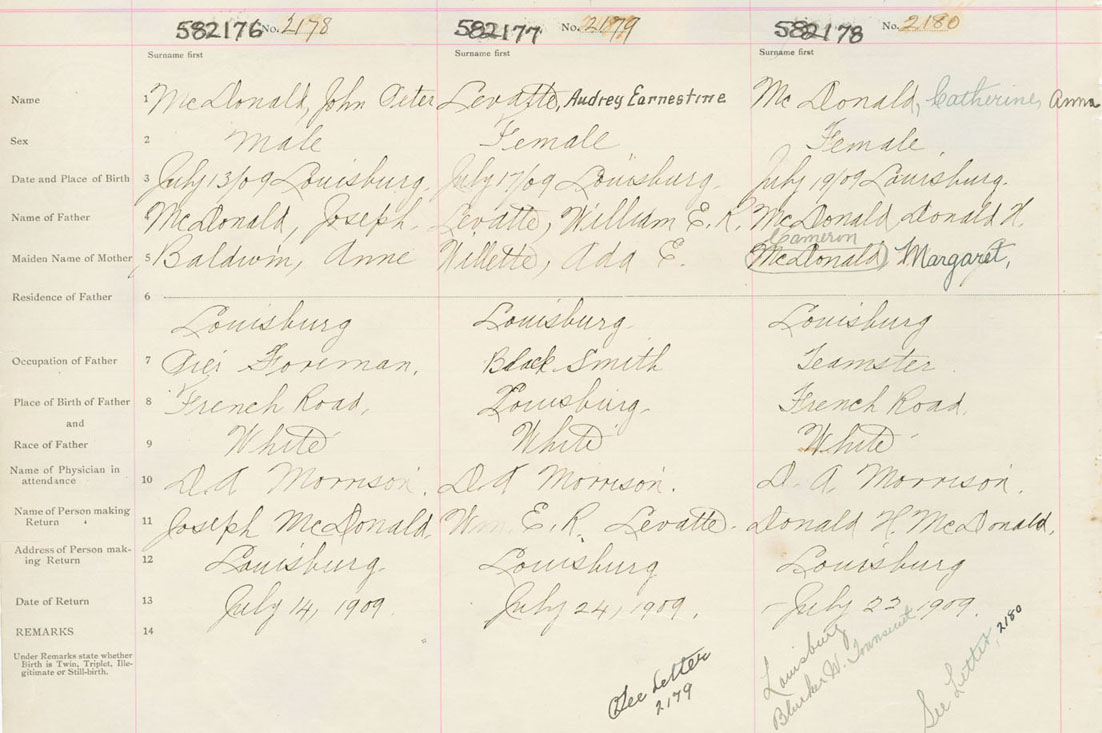 582176 No. 2178 582177 No. 2179 582178 No. 2180
Surname first Surname first Surname first
Name 1 McDonald, John Peter Levatte, Audrey Earnestine McDonald, Catherine Anna
Sex 2 Male Female Female
Date and Place of Birth 3 July 13/09 Louisburg. July 17/09 Louisburg. July 19/09 Louisburg.
Name of Father McDonald, Joseph. Levatte, William E. R. McDonald Donald H.
Cameron
Maiden Name of Mother 5 Baldwin, Anne Willette, Ada E. McDonald Margaret,
Residence of Father 6
Louisburg Louisburg. Louisburg
Occupation of Father 7 Pier Foreman, Black Smith Teamster
Place of Birth of Father 8 French Road, Louisburg. French Road,
and
Race of Father 9 White White White
Name of Physician in
attendance 10 D. A Morrison. D. A Morrison. D. A. Morrison.
Name of Person making
Return 11 Joseph McDonald, Wm. E. R. Levatte. Donald H. McDonald,
Address of Person mak-
ing Return 12 Louisburg. Louisburg Louisburg
Date of Return 13 July 14, 1909. July 24, 1909. July 22, 1909.
REMARKS 14
Under Remarks state whether
Birth is Twin, Triplet, Ille-
gitimate or Still-birth.
See Letter
2179
Louisburg
W.
See Letter, 2180